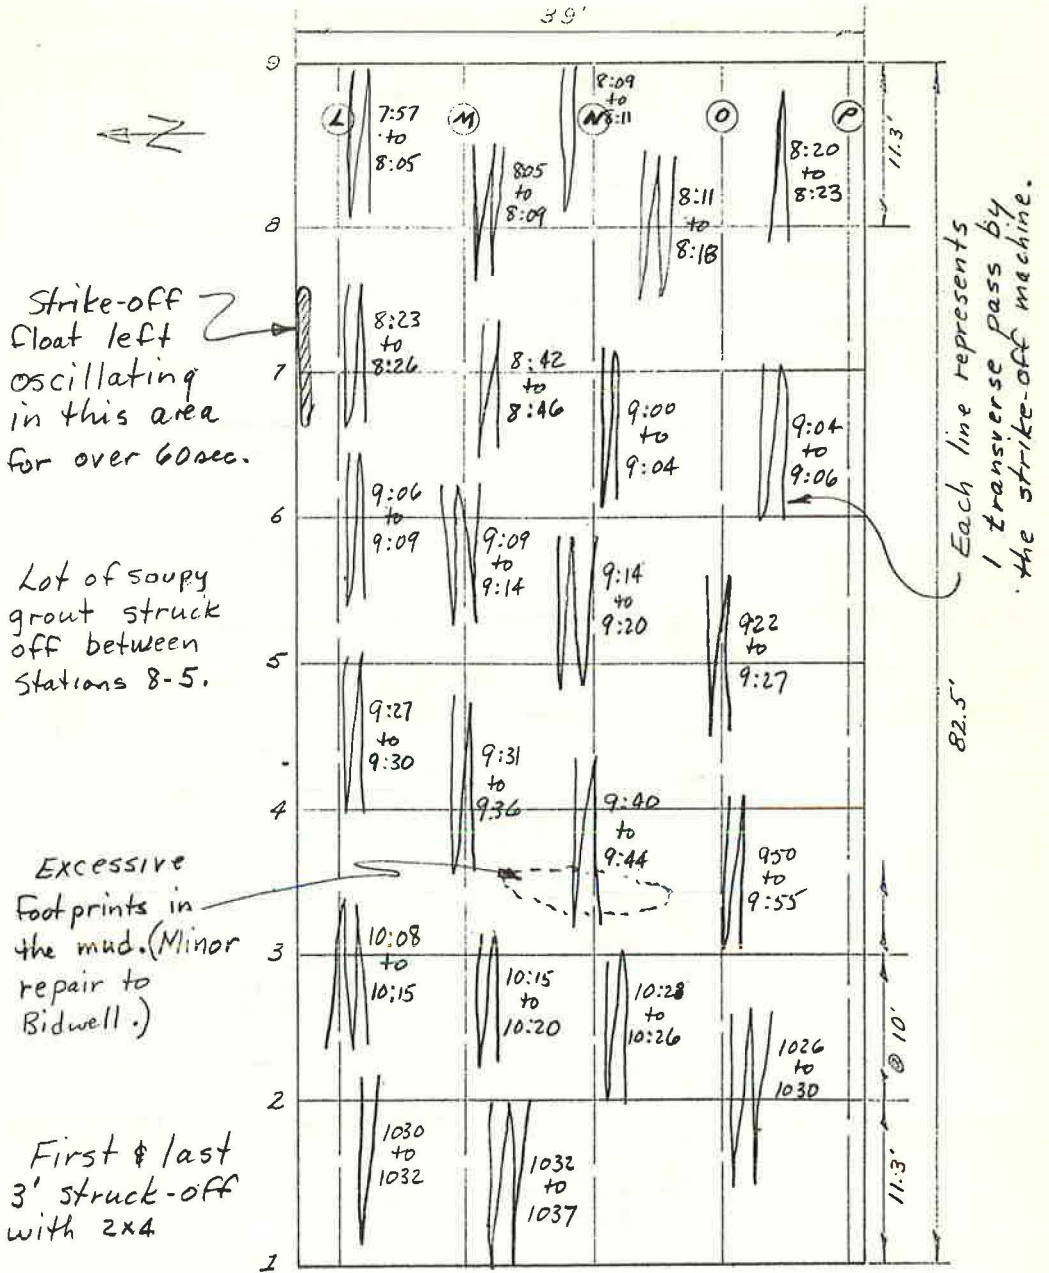 39'
9
L
7:57
to
8:05
M
8:05
to
8:09
N
8:09
to
8:11
O
8:11
to
8:18
P
8:20
to
8:23
11.3'
N
8
Strike-off
float left
oscillating
in this area
for over 60sec.
8:23
to
8:26
7
8:42
to
8:46
9:00
to
9:04
9:04
to
9:06
Each line represents
1 transverse pass by
the strike-off machine.
9:06
to
9:09
6
9:09
to
9:14
9:14
to
9:20
922
to
9:27
Lot of soupy
grout struck
off between
Stations 8-5.
5
82.5'
9:27
to
9:30
9:31
to
936
4
9:40
to
9:44
950
to
9:55
Excessive
footprints in
the mud. (Minor
repair to
Bidwell.)
3
10:08
to
10:15
10:15
to
10:20
to
10:26
1026
to
1030
@ 10'
2
First & last
3' struck-off
with 2x4
1030
to
1032
1032
to
1037
11.3'
1